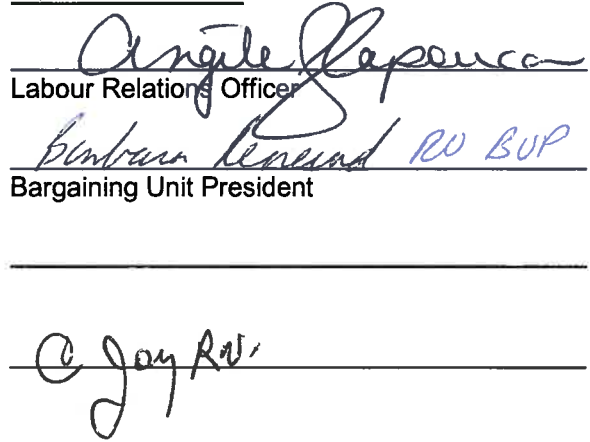 Angèle Lapensée
Labour Relations Officer
Barbara RN BUP
Bargaining Unit President
C Jay RN.